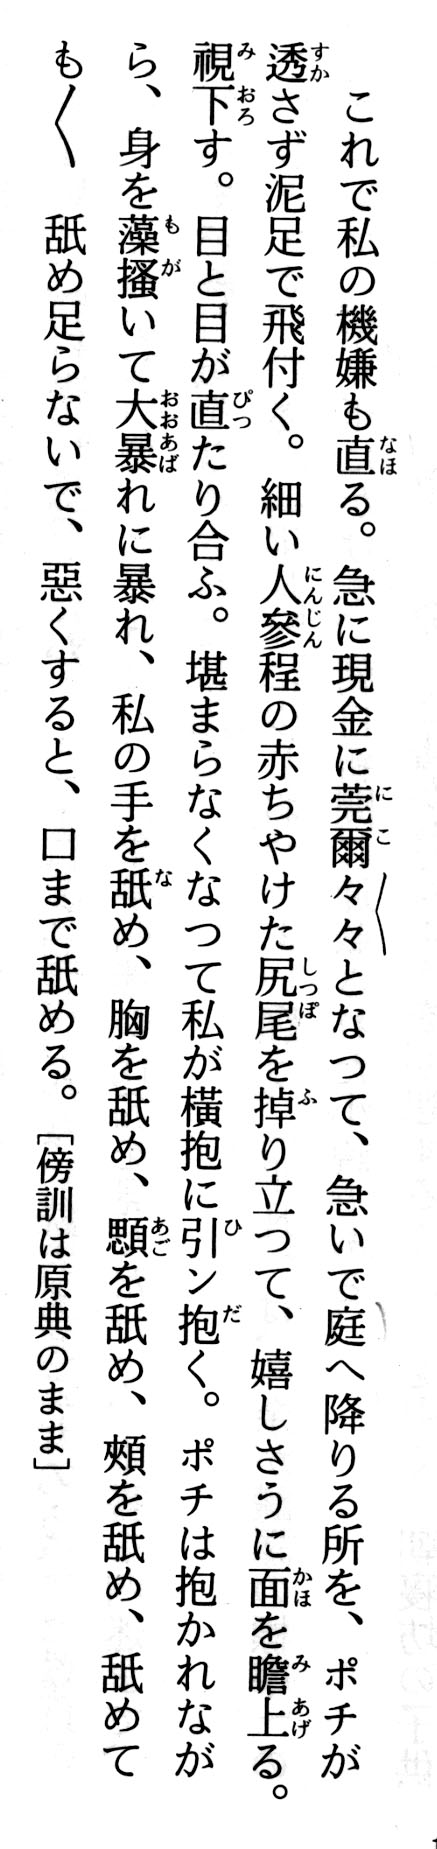 これで私の機嫌も直る。急に現金に莞爾々々となつて、急いで庭へ降りる所を、ポチが
透さず泥足で飛付く。細い人參程の赤ちやけた尻尾を掉り立つて、嬉しさうに面を瞻上る。
視下す。目と目が直たり合ふ。堪まらなくなつて私が橫抱に引ン抱く。ポチは抱かれなが
ら、身を藻搔いて大暴れに暴れ、私の手を舐め、胸を舐め、顋を舐め、頰を舐め、舐めて
も〱　舐め足らないで、惡くすると、口まで舐める。[傍訓は原典のまま]